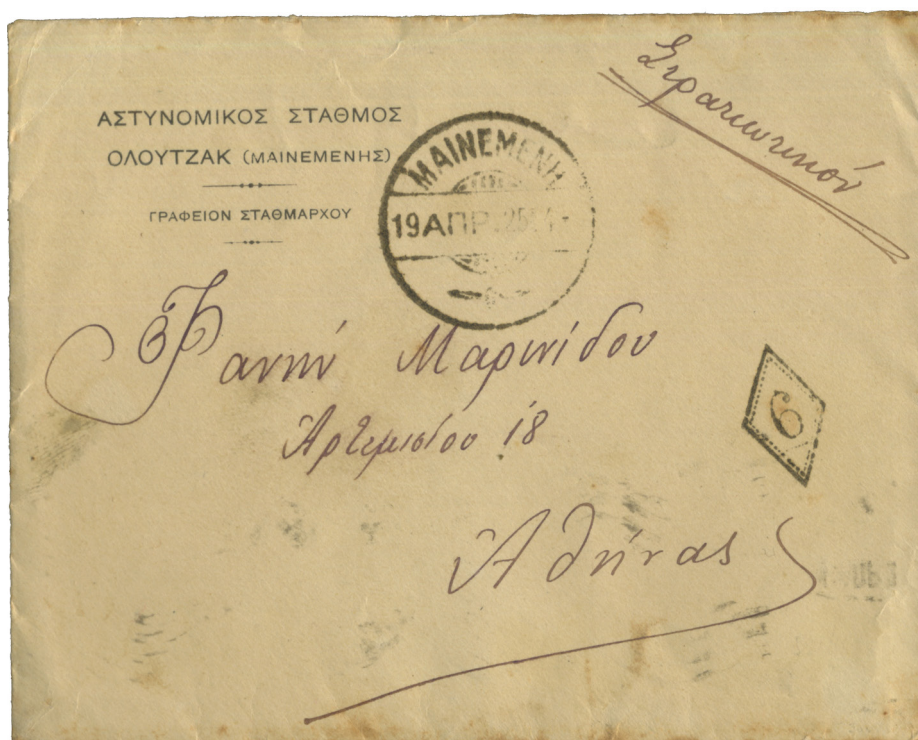 ΑΣΤΥΝΟΜΙΚΟΣ ΣΤΑΘΜΟΣ
ΟΛΟΥΤΖΑΚ (ΜΑΙΝΕΜΕΝΗΣ)
ΓΡΑΦΕΙΟΝ ΣΤΑΘΜΑΡΧΟΥ
ΜΑΙΝΕΜΕΝΗ
19 ΑΠΡ
Στρατιωτικόν
Φανήν Μαρινίδου
Ἀρτεμισίου 18
6
Ἀθήνας